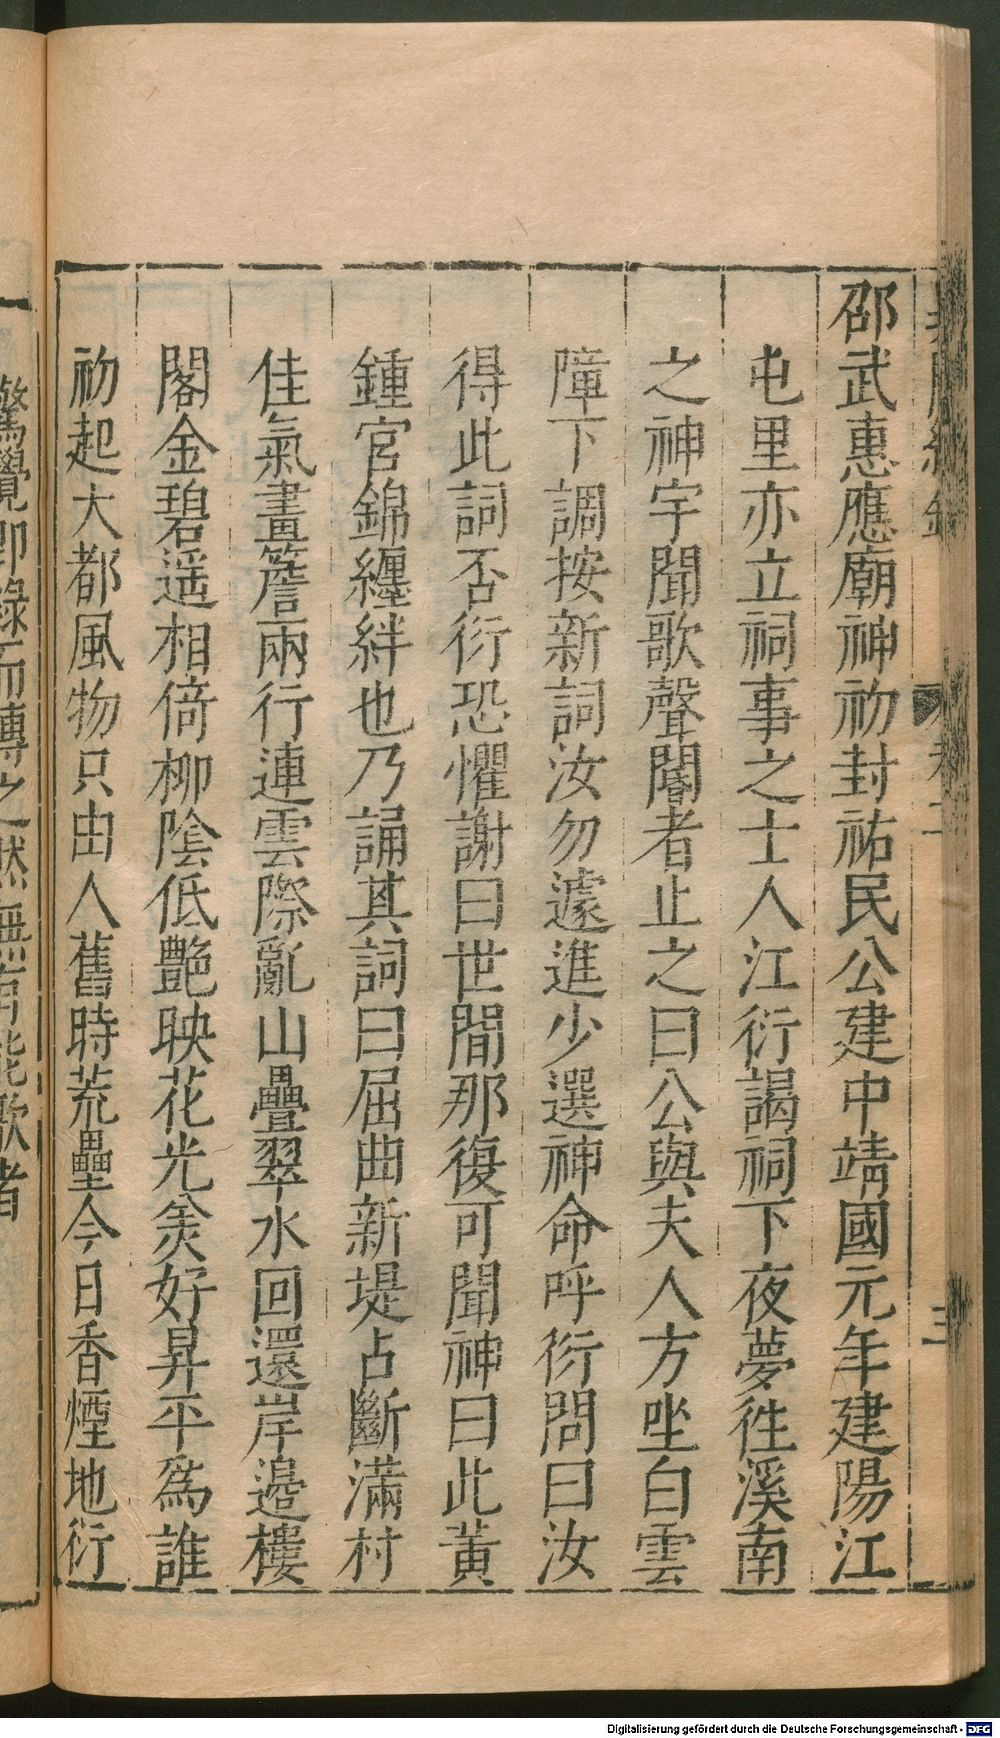 邵武惠應廟神初封祐民公建中靖國元年建陽江
屯里亦立祠事之士人江衍謁祠下夜夢徃溪南
之神宇聞歌聲閽者止之曰公與夫人方坐白雲
障下調按新詞汝勿遽進少選神命呼衍問曰汝
得此詞否衍恐懼謝曰世間那復可聞神曰此黃
鍾宮錦纏絆也乃誦其詞曰屈曲新堤占斷滿村
佳氣畫簷兩行連雲際亂山疊翠水回還岸邉樓
閣金碧遥相倚柳陰低艷映花光羙好昇平爲誰
初起大都風物只由人舊時荒壘今日香煙地衍
驚覺即錄而傳之然無有能歌者
三
Digitalisierung gefördert durch die Deutsche Forschungsgemeinschaft - DFG